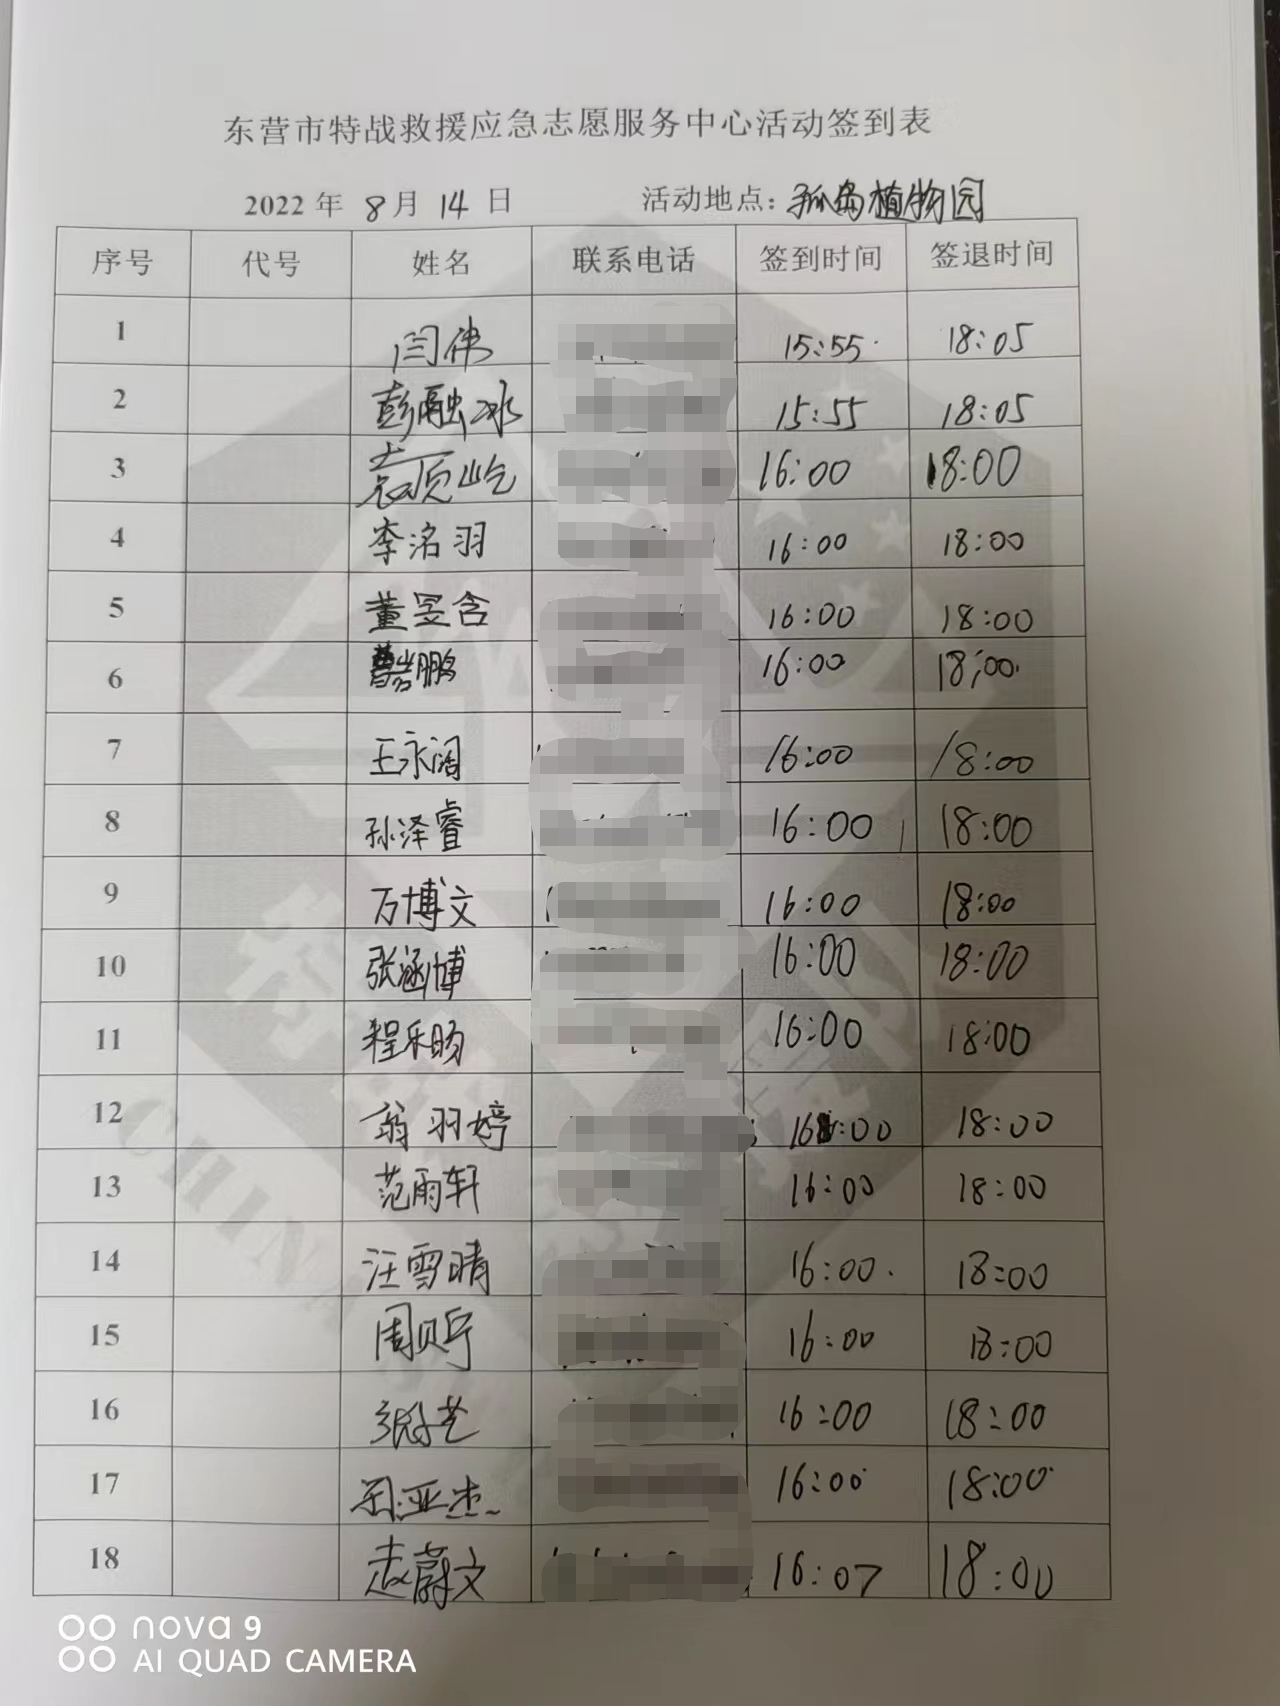 东营市特战救援应急志愿服务中心活动签到表
2022 年 8 月 14 日 活动地点：孤岛植物园
序号 代号 姓名 联系电话 签到时间 签退时间
1 闫伟 15:55 18:05
2 彭融冰 15:55 18:05
3 袁顶屹 16:00 18:00
4 李洺羽 16:00 18:00
5 董昱含 16:00 18:00
6 曹岩鹏 16:00 18:00
7 王永阔 16:00 18:00
8 孙泽睿 16:00 18:00
9 万博文 16:00 18:00
10 张涵博 16:00 18:00
11 程乐旸 16:00 18:00
12 翁羽婷 16:00 18:00
13 范雨轩 16:00 18:00
14 汪雪晴 16:00 18:00
15 周贝宁 16:00 18:00
16 16:00 18:00
17 亚杰 16:00 18:00
18 赵蔚文 16:07 18:00
CHINA
nova 9
AI QUAD CAMERA